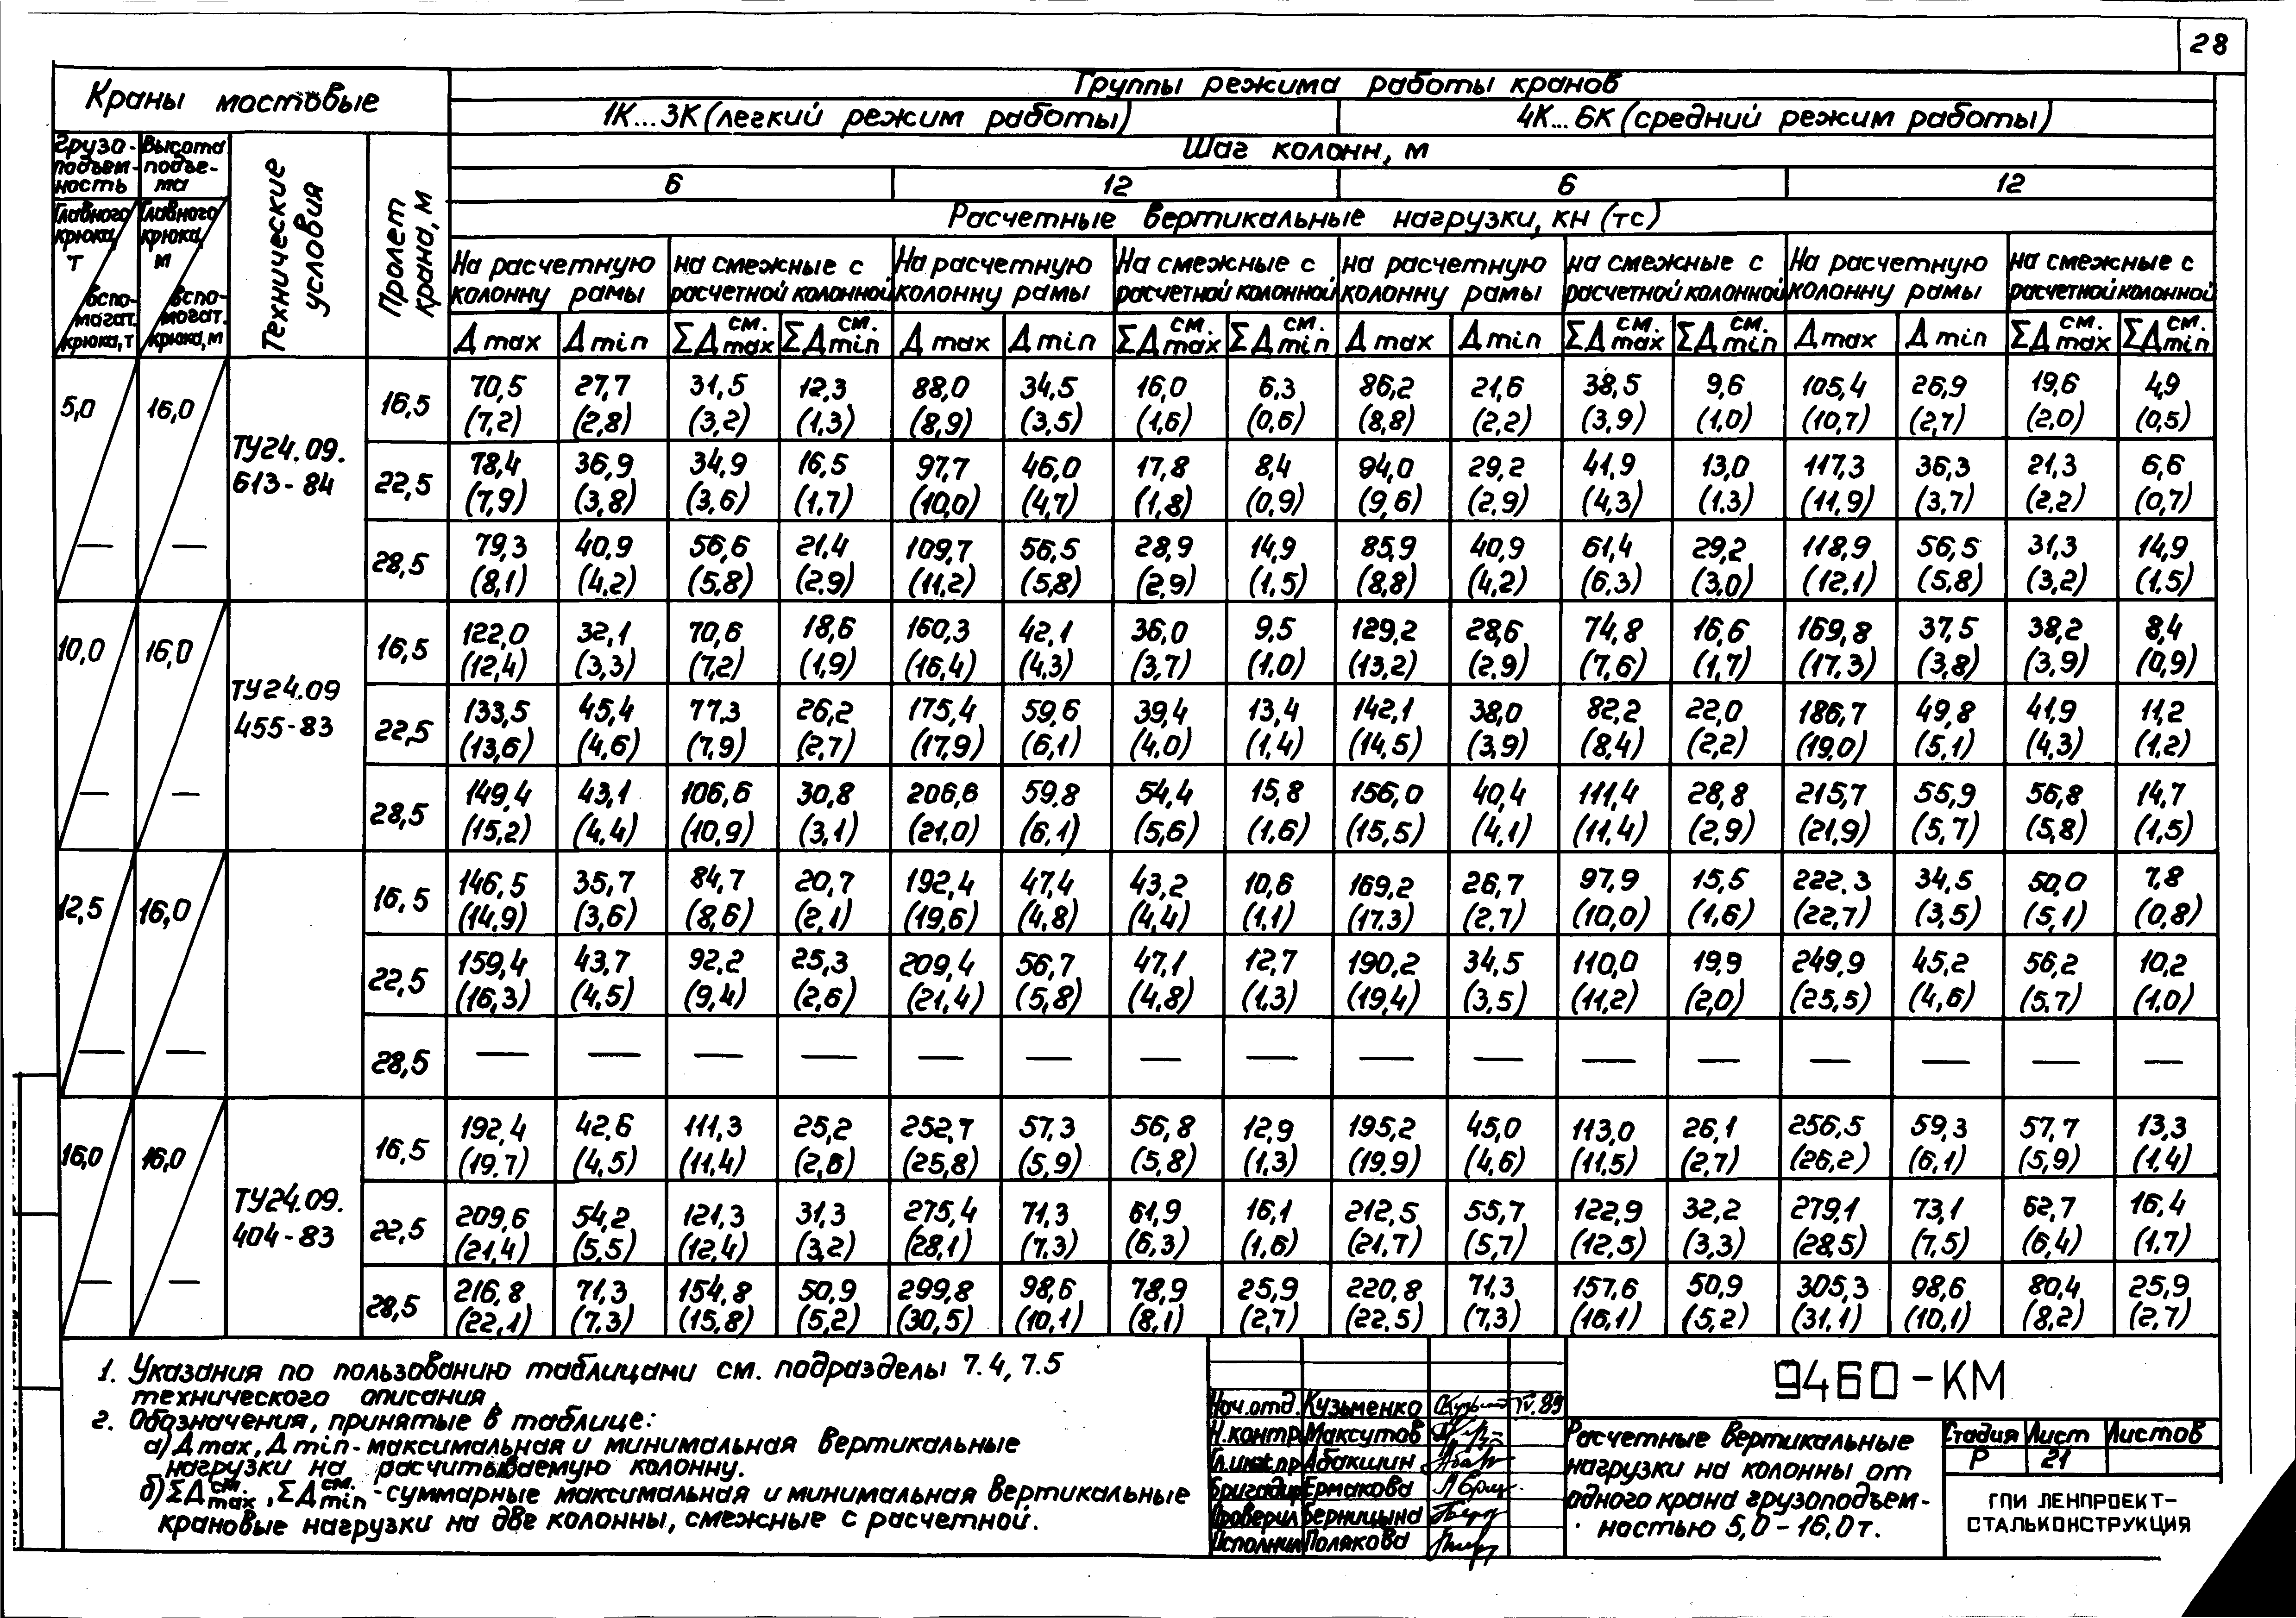 28
Краны мостовые
Группы режима работы кранов
1К...3К (легкий режим работы)
4К...6К (средний режим работы)
Шаг колонн, м
6 12 6 12
Расчетные вертикальные нагрузки, кН (тс)
Грузо-
подъем-
ность
Главного
крюка,
т
вспо-
могат.
крюка, т
Высота
подъе-
ма
Главного
крюка,
м
вспо-
могат.
крюка, м
Технические
условия
Пролет
крана, м
На расчетную на смежные с На расчетную На смежные с на расчетную на смежные с На расчетную на смежные с
колонну рамы расчетной колонной колонну рамы расчетной колонной колонну рамы расчетной колонной колонну рамы расчетной колонной
Δmax Δmin ΣΔсм.max ΣΔсм.min Δmax Δmin ΣΔсм.max ΣΔсм.min Δmax Δmin ΣΔсм.max ΣΔсм.min Δmax Δmin ΣΔсм.max ΣΔсм.min
5,0 16,0
— —
ТУ24.09.
613-84
16,5 70,5 27,7 31,5 12,3 88,0 34,5 16,0 6,3 86,2 21,6 38,5 9,6 105,4 26,9 19,6 4,9
(7,2) (2,8) (3,2) (1,3) (8,9) (3,5) (1,6) (0,6) (8,8) (2,2) (3,9) (1,0) (10,7) (2,7) (2,0) (0,5)
22,5 78,4 36,9 34,9 16,5 97,7 46,0 17,8 8,4 94,0 29,2 41,9 13,0 117,3 36,3 21,3 6,6
(7,9) (3,8) (3,6) (1,7) (10,0) (4,7) (1,8) (0,9) (9,6) (2,9) (4,3) (1,3) (11,9) (3,7) (2,2) (0,7)
28,5 79,3 40,9 56,6 21,4 109,7 56,5 28,9 14,9 85,9 40,9 61,4 29,2 118,9 56,5 31,3 14,9
(8,1) (4,2) (5,8) (2,9) (11,2) (5,8) (2,9) (1,5) (8,8) (4,2) (6,3) (3,0) (12,1) (5,8) (3,2) (1,5)
10,0 16,0
— —
ТУ24.09
455-83
16,5 122,0 32,1 70,6 18,6 160,3 42,1 36,0 9,5 129,2 28,6 74,8 16,6 169,8 37,5 38,2 8,4
(12,4) (3,3) (7,2) (1,9) (16,4) (4,3) (3,7) (1,0) (13,2) (2,9) (7,6) (1,7) (17,3) (3,8) (3,9) (0,9)
22,5 133,5 45,4 77,3 26,2 175,4 59,6 39,4 13,4 142,1 38,0 82,2 22,0 186,7 49,8 41,9 11,2
(13,6) (4,6) (7,9) (2,7) (17,9) (6,1) (4,0) (1,4) (14,5) (3,9) (8,4) (2,2) (19,0) (5,1) (4,3) (1,2)
28,5 149,4 43,1 106,6 30,8 206,6 59,8 54,4 15,8 156,0 40,4 111,4 28,8 215,7 55,9 56,8 14,7
(15,2) (4,4) (10,9) (3,1) (21,0) (6,1) (5,6) (1,6) (15,5) (4,1) (11,4) (2,9) (21,9) (5,7) (5,8) (1,5)
12,5 16,0
— —
16,5 146,5 35,7 84,7 20,7 192,4 47,4 43,2 10,6 169,2 26,7 97,9 15,5 222,3 34,5 50,0 7,8
(14,9) (3,6) (8,6) (2,1) (19,6) (4,8) (4,4) (1,1) (17,3) (2,7) (10,0) (1,6) (22,7) (3,5) (5,1) (0,8)
22,5 159,4 43,7 92,2 25,3 209,4 56,7 47,1 12,7 190,2 34,5 110,0 19,9 249,9 45,2 56,2 10,2
(16,3) (4,5) (9,4) (2,6) (21,4) (5,8) (4,8) (1,3) (19,4) (3,5) (11,2) (2,0) (25,5) (4,6) (5,7) (1,0)
28,5 — — — — — — — — — — — — — — — —
16,0 16,0
— —
ТУ24.09.
404-83
16,5 192,4 42,6 111,3 25,2 252,7 57,3 56,8 12,9 195,2 45,0 113,0 26,1 256,5 59,3 57,7 13,3
(19,7) (4,5) (11,4) (2,6) (25,8) (5,9) (5,8) (1,3) (19,9) (4,6) (11,5) (2,7) (26,2) (6,1) (5,9) (1,4)
22,5 209,6 54,2 121,3 31,3 275,4 71,3 61,9 16,1 212,5 55,7 122,9 32,2 279,1 73,1 62,7 16,4
(21,4) (5,5) (12,4) (3,2) (28,1) (7,3) (6,3) (1,6) (21,7) (5,7) (12,5) (3,3) (28,5) (7,5) (6,4) (1,7)
28,5 216,8 71,3 154,8 50,9 299,8 98,6 78,9 25,9 220,8 71,3 157,6 50,9 305,3 98,6 80,4 25,9
(22,1) (7,3) (15,8) (5,2) (30,5) (10,1) (8,1) (2,7) (22,5) (7,3) (16,1) (5,2) (31,1) (10,1) (8,2) (2,7)
1. Указания по пользованию таблицами см. подразделы 7.4, 7.5
технического описания.
2. Обозначения, принятые в таблице:
а) Δmax, Δmin - максимальная и минимальная вертикальные
нагрузки на расчитываемую колонну.
б) ΣΔсм.max, ΣΔсм.min - суммарные максимальная и минимальная вертикальные
крановые нагрузки на две колонны, смежные с расчетной.
Нач.отд. Кузьменко IV.89
Н.контр Максутов
Гл.инж.пр Абакшин
Бригадир Ермакова
Проверил Берницына
Исполнил Полякова
9460-КМ
Расчетные вертикальные
нагрузки на колонны от
одного крана грузоподъем-
ностью 5,0-16,0 т.
Стадия Лист Листов
Р 21
ГПИ ЛЕНПРОЕКТ-
СТАЛЬКОНСТРУКЦИЯ